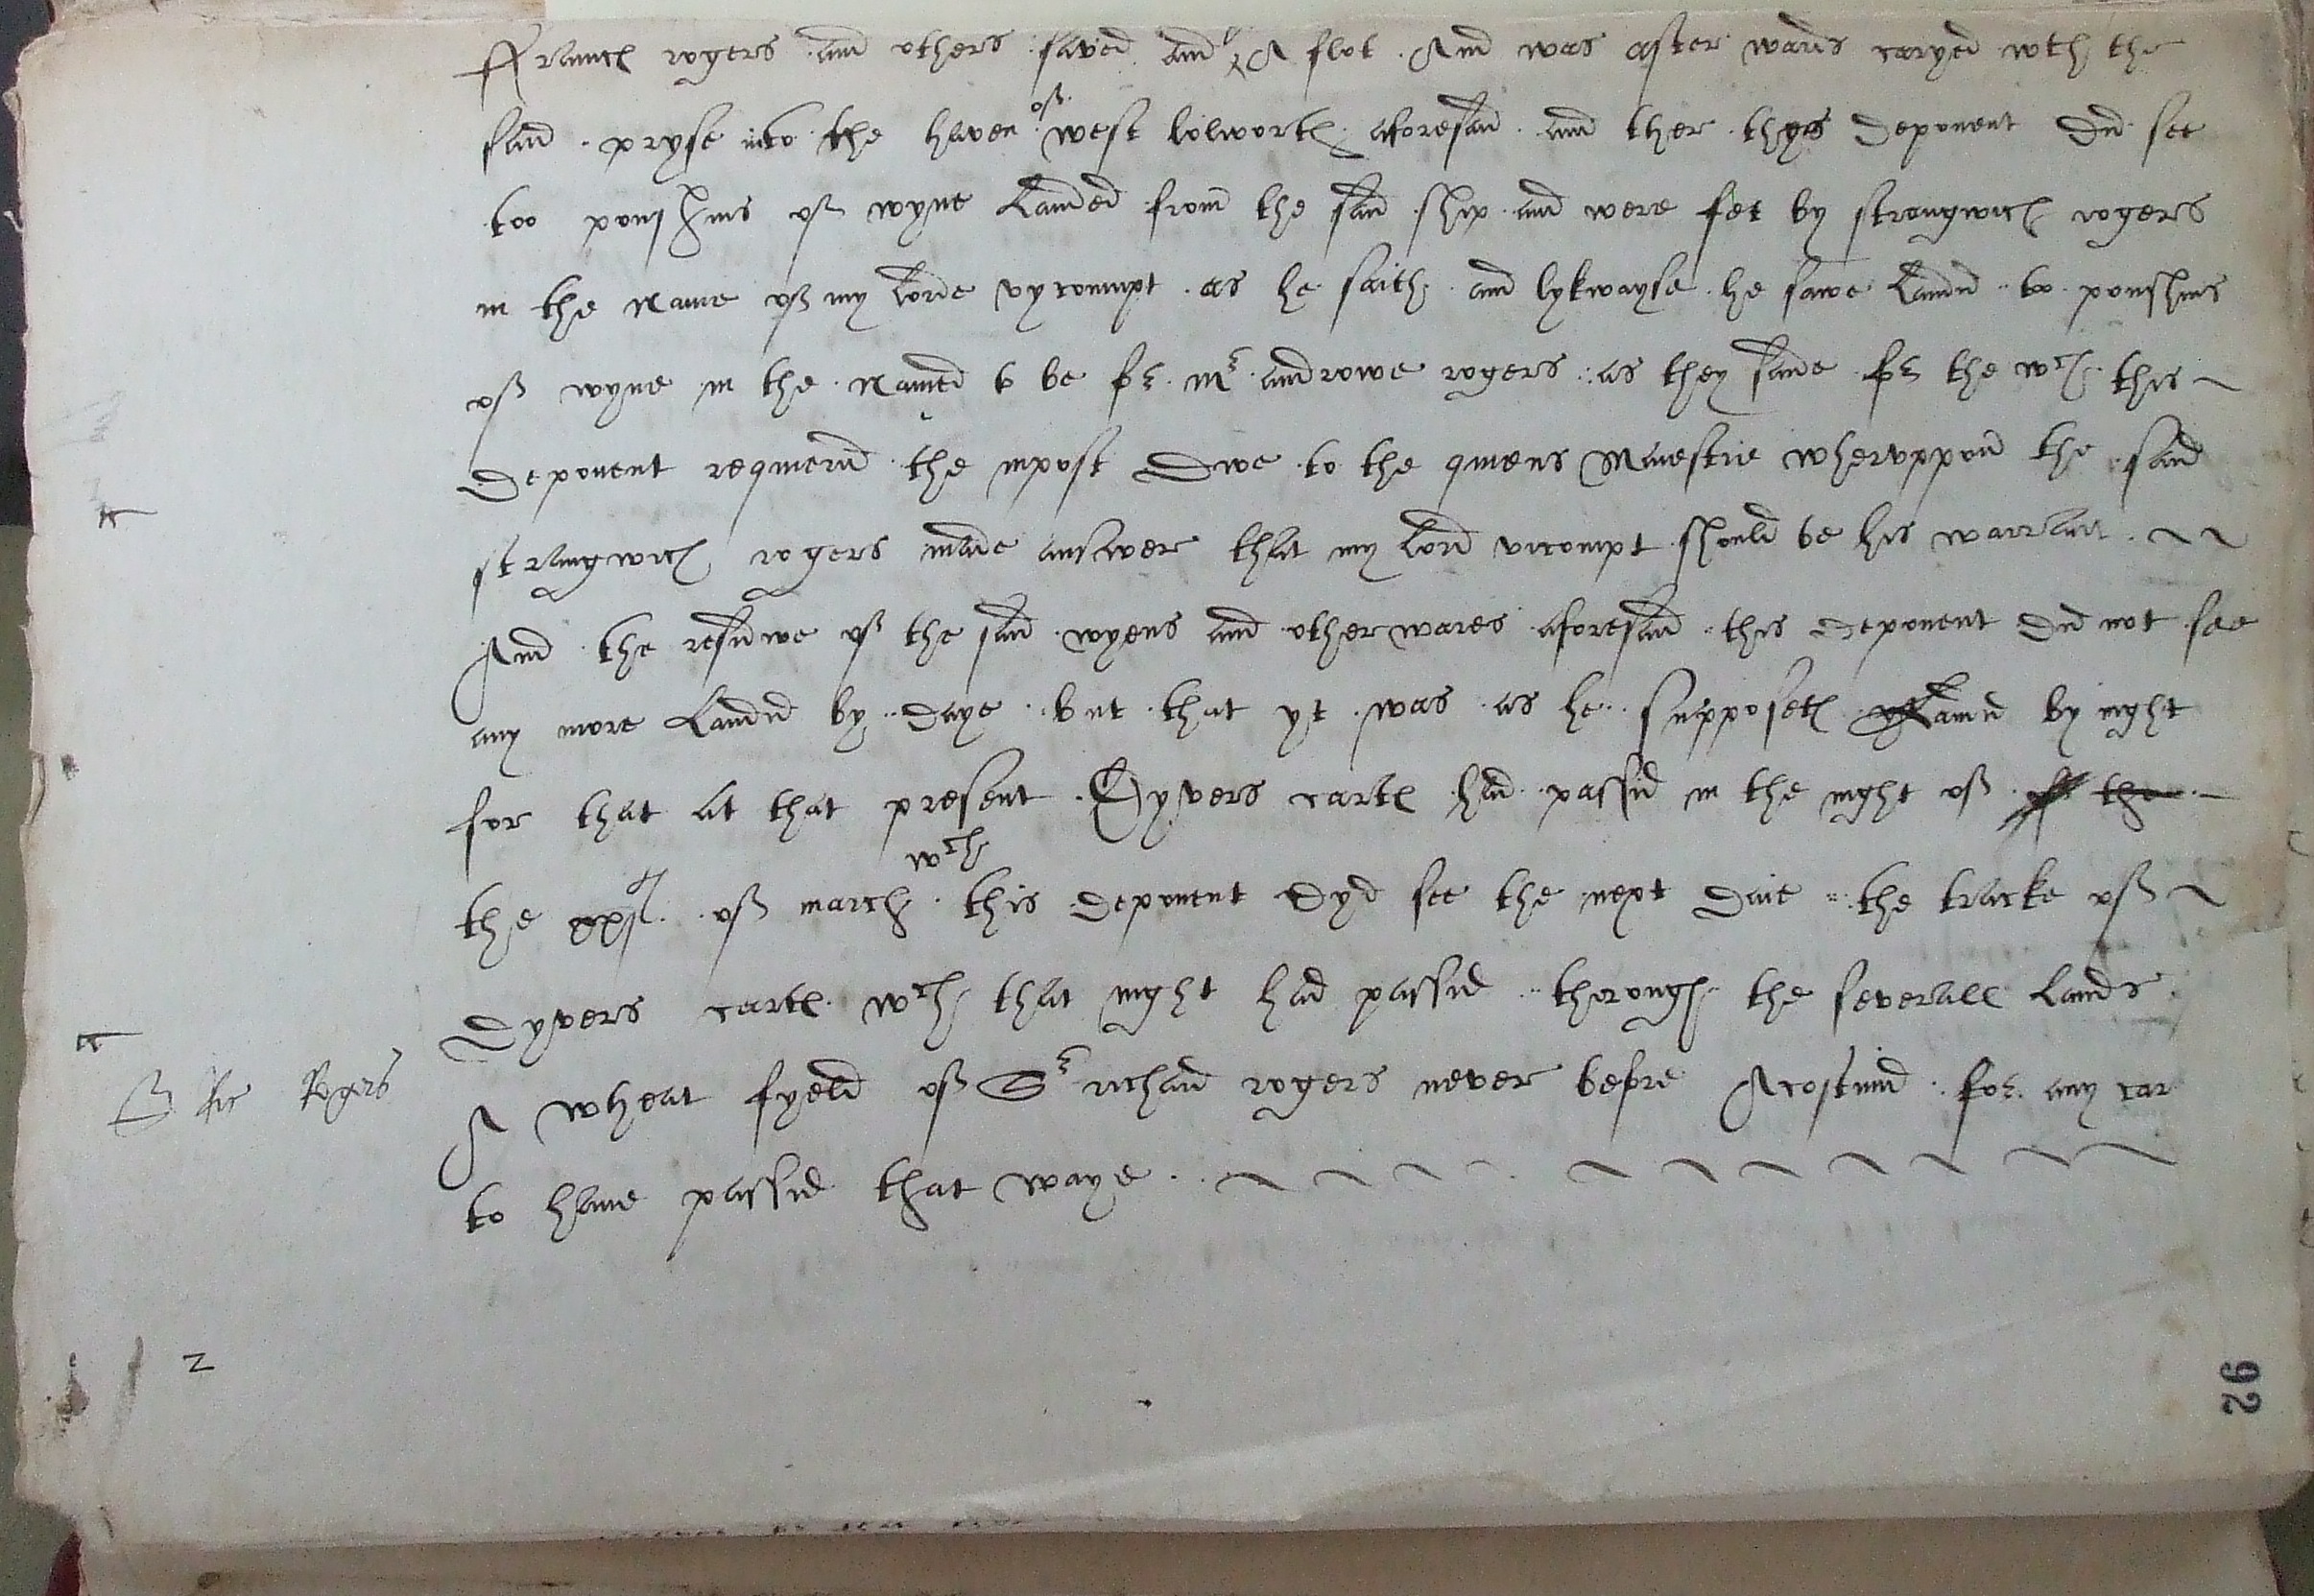 ffraunces rogers and others saved and A flot And was after wards caryed wth the
said pryse into the haven of west lolworth aforesaid and ther thys deponent did see
too ponshins of wyne Landed from the said ship and were fet by strangwich rogers
in the name of my Lorde vycoumpt as he saith and lykwayse he sawe Landid to ponshins
of wyne in the named to be for mr androwe rogers as they saide for the wch this
deponent requierid the inpost dwe to the quiens Maiestie wheruppon the said
strangwich rogers made answer that my Lord vicompt should be his warrant
And the residwe of the said wyens and other wares aforesaid this deponent did not see
any more Landid by daye but that yt was as he supposeth Landid by nyght
for that at that present Dyvers cartes had passid in the nyght of of the
the of march wch this deponent dyd see the next daie the tracke of
Dyvers cartes wch that nyght had passid thorough the severall Lands
S Ric Rogers
A wheat fyeld of Sr richard rogers never before Acostmid for any car
to haue passid that waye
2
92